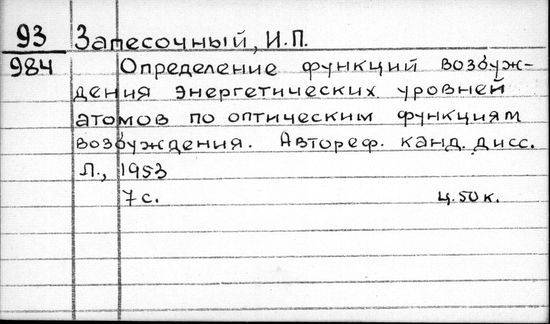 93 Запесочный, И.П.
984 Определение функций возбуж-
дения энергетических уровней
атомов по оптическим функциям
возбуждения. Автореф. канд. дисс.
Л., 1953
7 с. ц. 50 к.